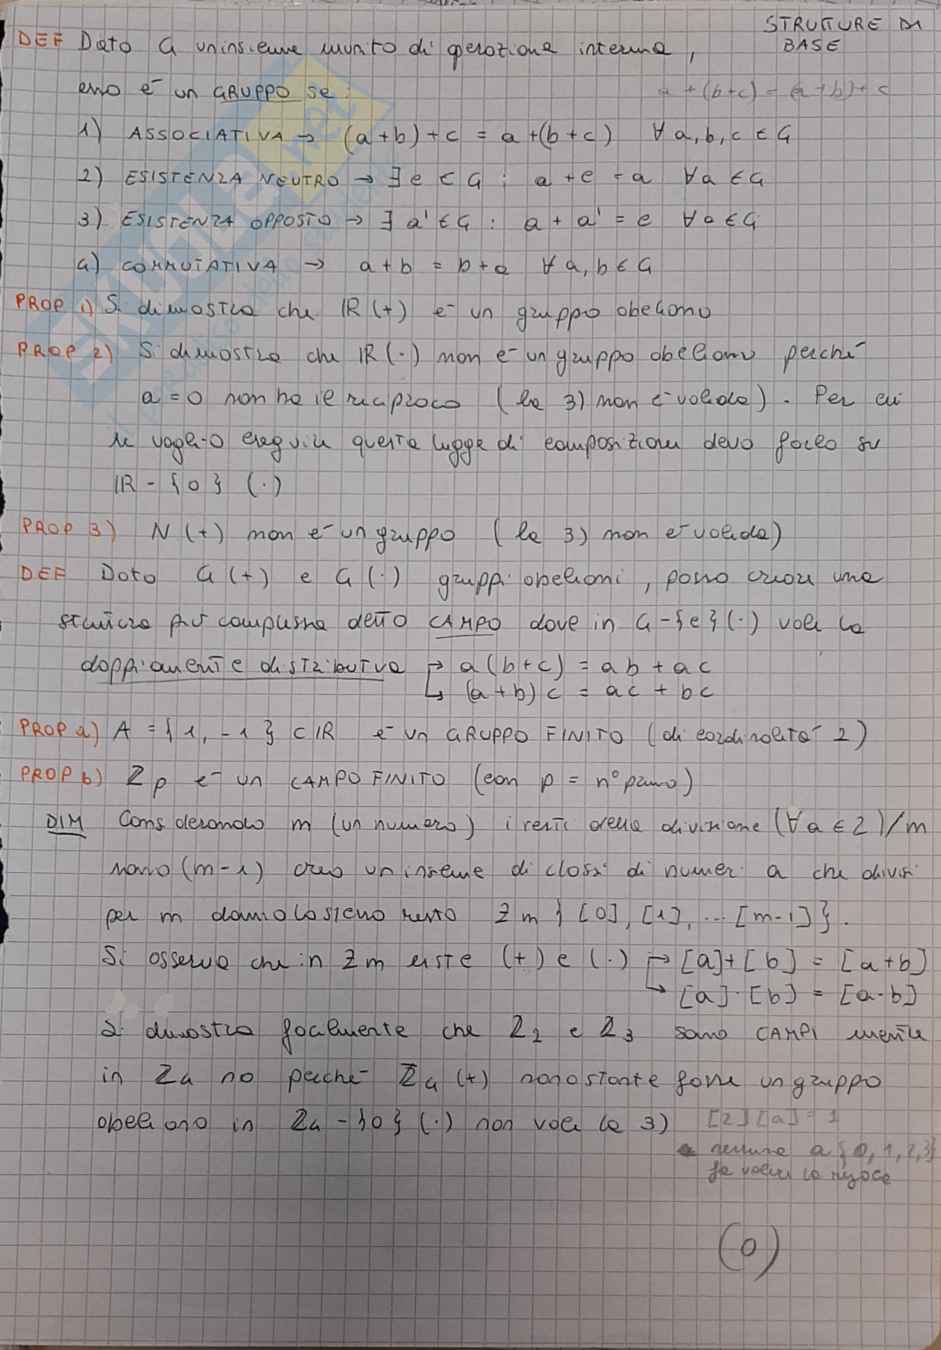 STRUTTURE DI
BASE
DEF Dato G un insieme munito di operazione interna,
esso è un GRUPPO se:
a+(b+c) = (a+b)+c
1) ASSOCIATIVA → (a+b)+c = a+(b+c) ∀ a,b,c ∈ G
2) ESISTENZA NEUTRO → ∃ e ∈ G : a+e = a ∀a ∈ G
3) ESISTENZA OPPOSTO → ∃ a' ∈ G : a + a' = e ∀a ∈ G
4) COMMUTATIVA → a+b = b+a ∀ a,b ∈ G
PROP 1) Si dimostra che IR (+) è un gruppo abeliano
PROP 2) Si dimostra che IR (·) non è un gruppo abeliano perché
a=0 non ha il reciproco (la 3) non è valida). Per cui
se voglio eseguire questa legge di composizione devo farlo su
IR - {0} (·)
PROP 3) N (+) non è un gruppo (la 3) non è valida)
DEF Dato G (+) e G (·) gruppi abeliani, posso creare una
struttura più complessa detto CAMPO dove in G-{e} (·) vale la
doppiamente distributiva → a(b+c) = ab + ac
↳ (a+b)c = ac + bc
PROP a) A = {1, -1} ⊂ IR è un GRUPPO FINITO (di cardinalità 2)
PROP b) Zp è un CAMPO FINITO (con p = n° primo)
DIM Considerando m (un numero) i resti della divisione (∀a ∈ Z)/m
sono (m-1) creo un insieme di classi di numeri a che divisi
per m danno lo stesso resto Zm { [0], [1], ... [m-1] }.
Si osserva che in Zm esiste (+) e (·) → [a]+[b] = [a+b]
↳ [a]·[b] = [a·b]
Si dimostra facilmente che Z2 e Z3 sono CAMPI mentre
in Z4 no perché Z4 (+) nonostante fosse un gruppo
abeliano in Z4 - {0} (·) non vale la 3) [2][a] = 1
nessuna a {0,1,2,3}
fa valere la
(0)
SKUOLA.net